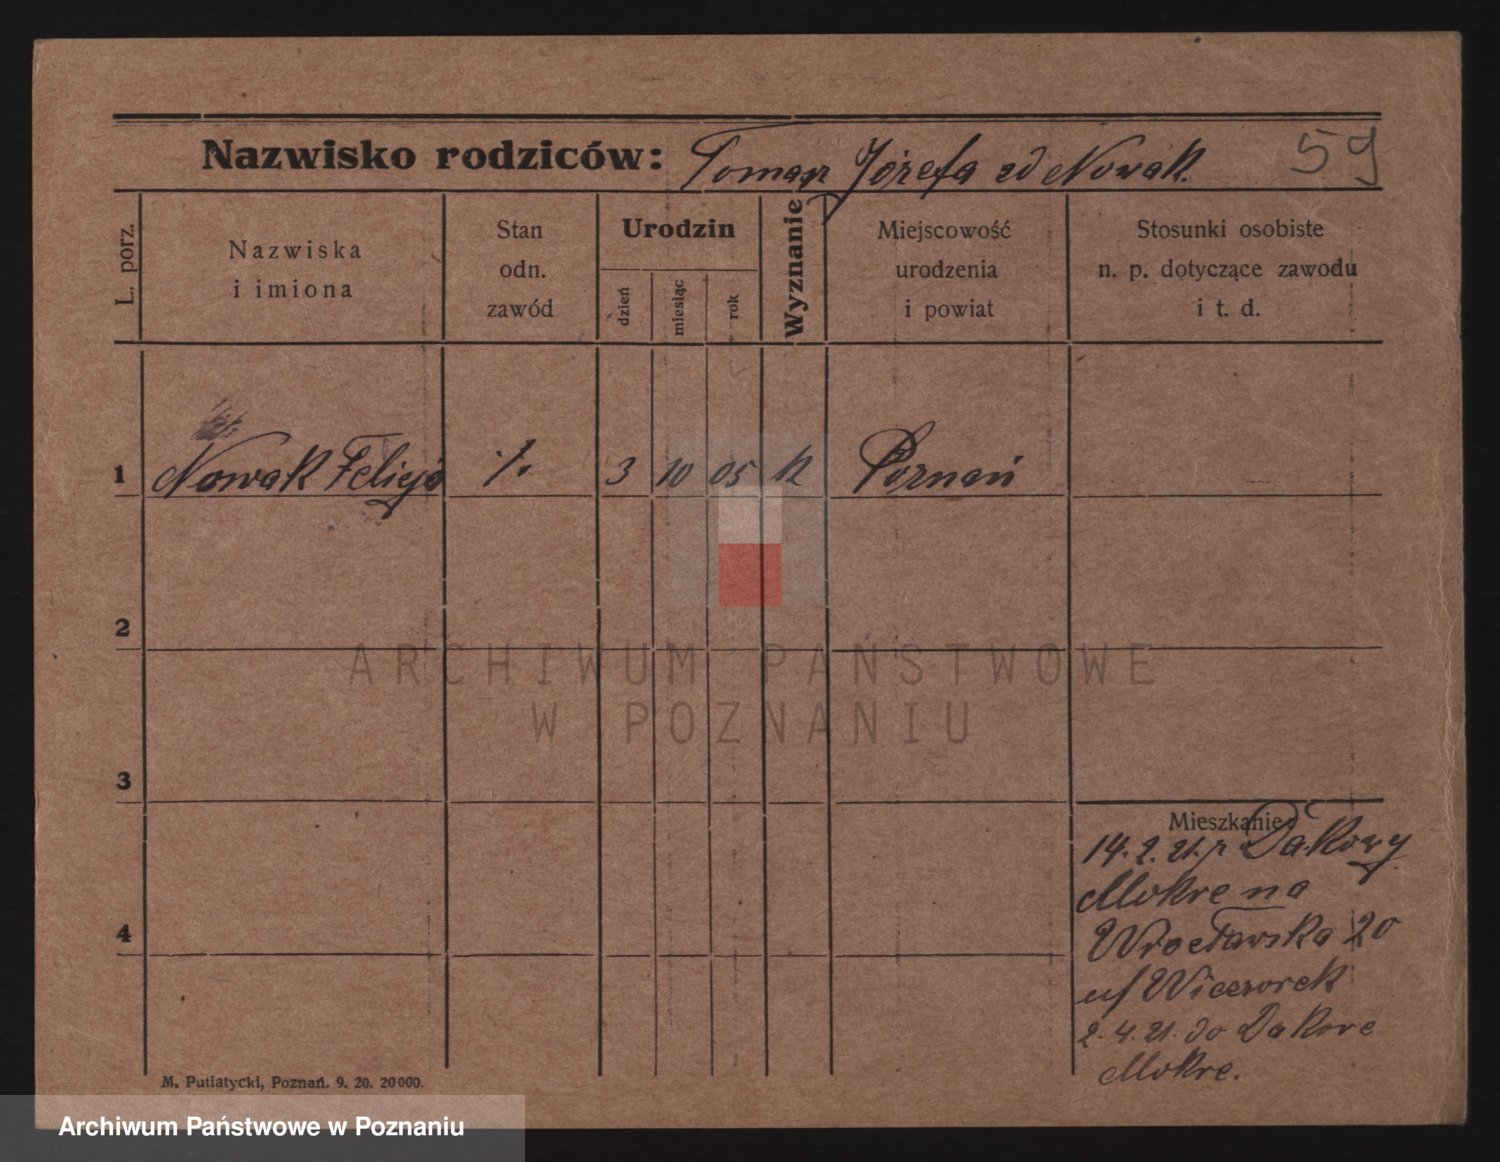 Nazwisko rodziców: Tomasz Józefa zd Nowak.
59
L. porz.
Nazwiska
i imiona
Stan
odn.
zawód
Urodzin
dzień
miesiąc
rok
Wyznanie
Miejscowość
urodzenia
i powiat
Stosunki osobiste
n. p. dotyczące zawodu
i t. d.
1 Nowak Felicja 3 10 05 k Poznań
2
3
4
Mieszkanie
14. 2. 21. z Dakowy
Mokre na
Wrocławska 20
u/ Wieczorek
2. 4. 21. do Dakowe
Mokre.
M. Putiatycki, Poznań. 9. 20. 20000.
ARCHIWUM PAŃSTWOWE
W POZNANIU
Archiwum Państwowe w Poznaniu